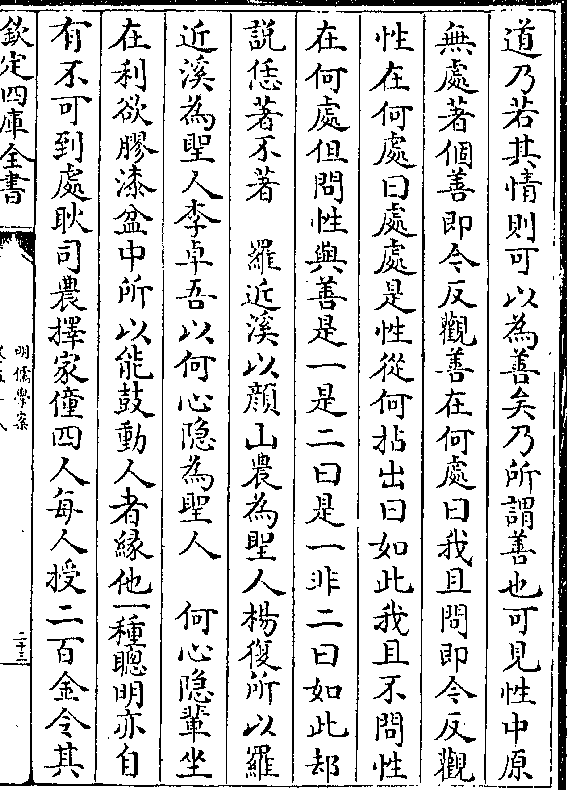 道乃若其情則可以為善矣乃所謂善也可見性中原
無處著個善即令反觀善在何處曰我且問即令反觀
性在何處曰處處是性從何拈出曰如此我且不問性
在何處但問性與善是一是二曰是一非二曰如此却
說恁著不著　羅近溪以顔山農為聖人楊復所以羅
近溪為聖人李卓吾以何心隐為聖人　何心隐軰坐
在利欲膠漆盆中所以能鼓動人者縁他一種聰明亦自
有不可到處耿司農擇家僮四人每人授二百金令其
欽定四庫全書
明儒學案
二十三